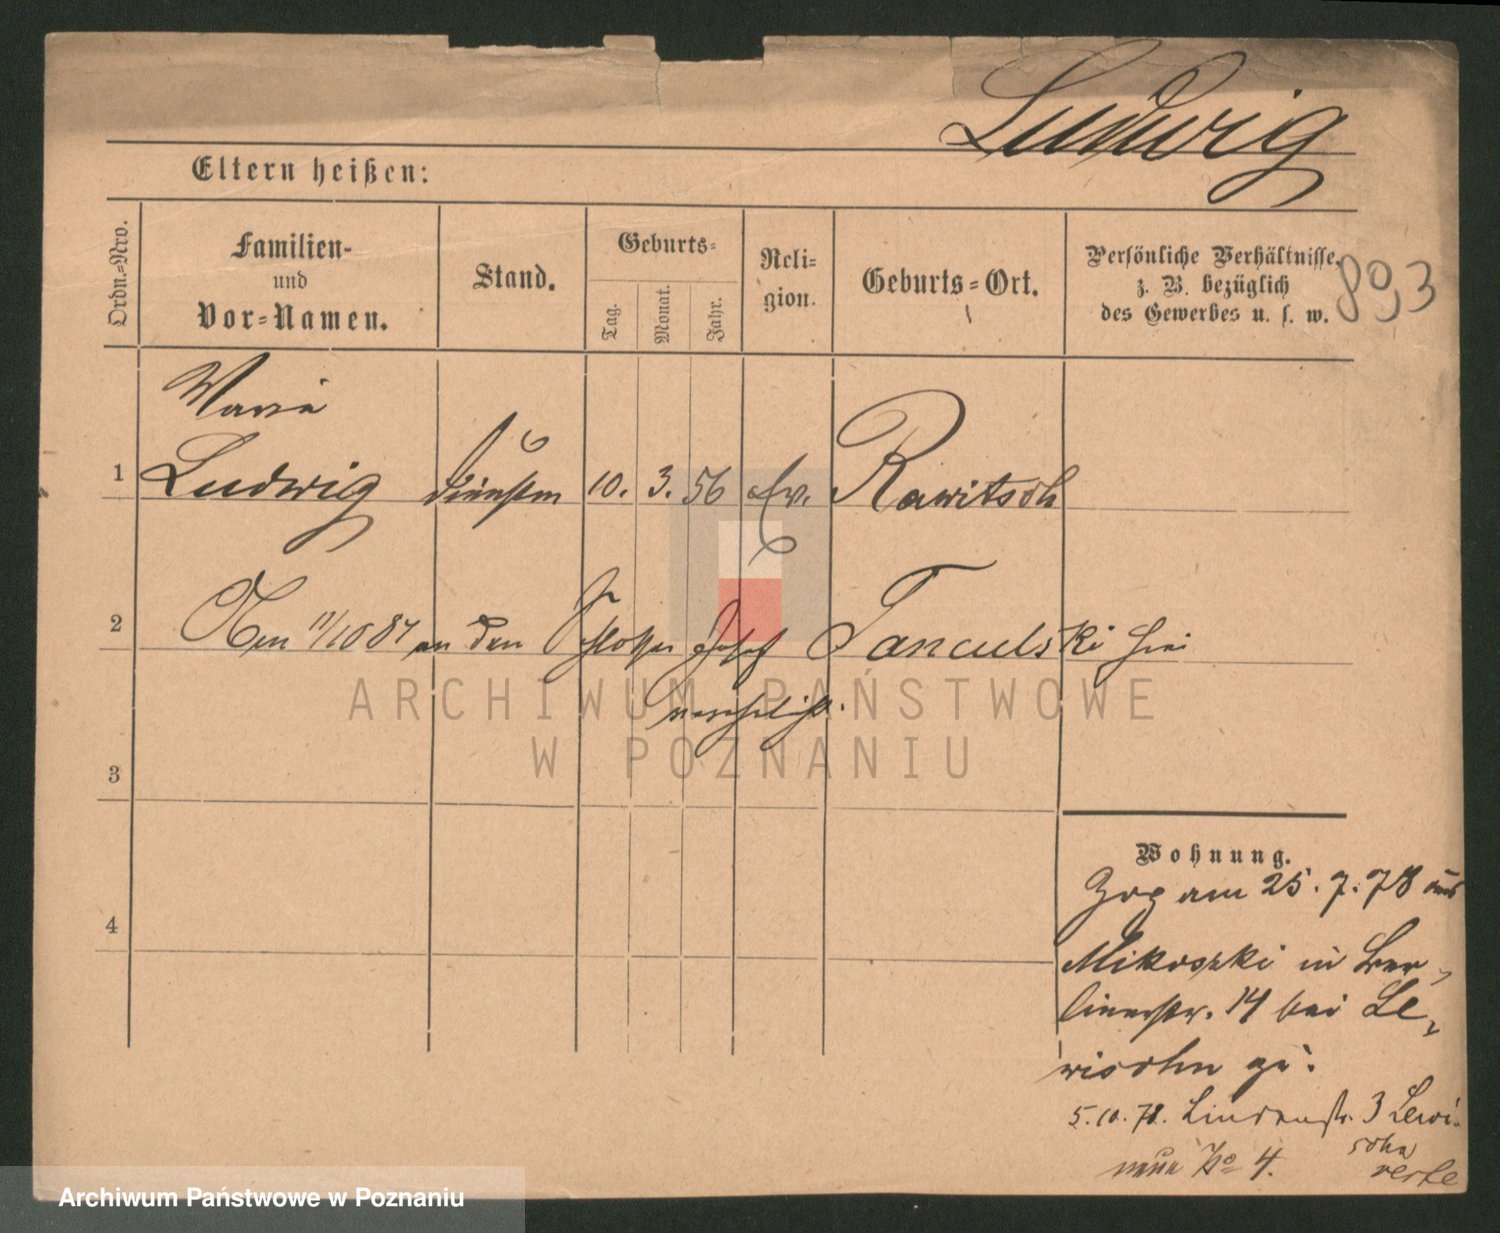 Ludwig
Eltern heißen:
Ordn.=Nro.
Familien-
und
Vor=Namen.
Stand.
Geburts=
Tag.
Monat.
Jahr.
Reli=
gion.
Geburts=Ort.
Persönliche Verhältnisse,
z. B. bezüglich
des Gewerbes u. s. w.
893
Maria
1 Ludwig 10. 3. 56 Ev. Rawitsch
2 11/10 87 an den Schlosser Josef Tanculski hier
verehelicht.
3
4
Wohnung.
Zog am 25. 7. 78 aus
Mikoszki in Ber-
linerstr. 14 bei Le-
wisohn zu.
5.10.78. Lindenstr. 3 Lewi-
sohn
neue No 4.
ARCHIWUM PAŃSTWOWE
W POZNANIU
Archiwum Państwowe w Poznaniu